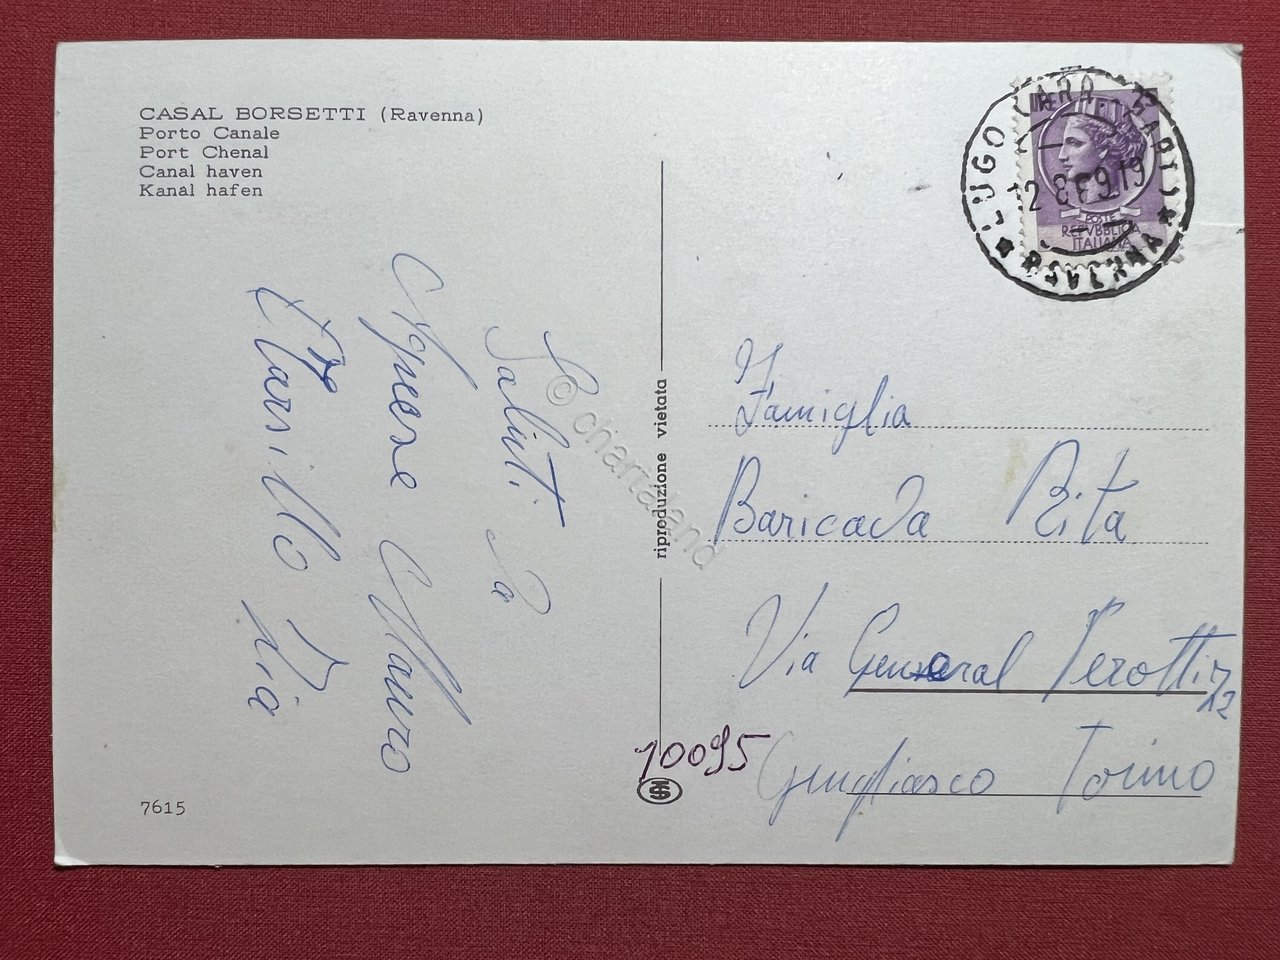 CASAL BORSETTI (Ravenna)
Porto Canale
Port Chenal
Canal haven
Kanal hafen
Saluti da
Agnese Mauro
Marsillo Pia
7615
riproduzione vietata
© chartaland
LIRE
POSTE
REPVBBLICA
ITALIANA
LUGO
RAVENNA
Famiglia
Baricada Rita
Via General Perotti n
12
10095
Grugliasco Torino